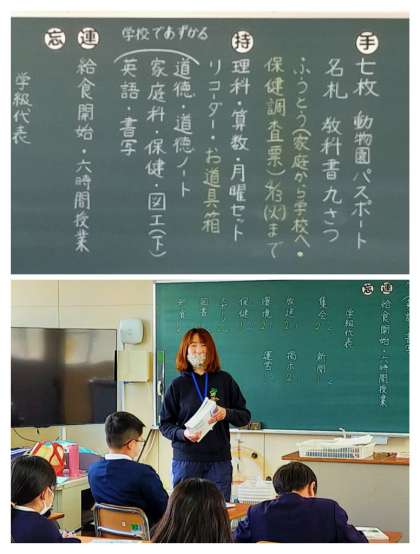 手 七枚 動物園パスポート
名札 教科書九さつ
ふうとう(家庭から学校へ・
保健調査票)4/13(火)まで
持 理科・算数・月曜セット
リコーダー・お道具箱
学校であずかる
(道徳、道徳ノート
家庭科・保健・図工(下)
英語・書写
連 給食開始・六時間授業
忘
学級代表
連 給食開始・六時間授業
忘
学級代表
集会2 新聞
放送2 掲示2
環境2 運営
保健
図書